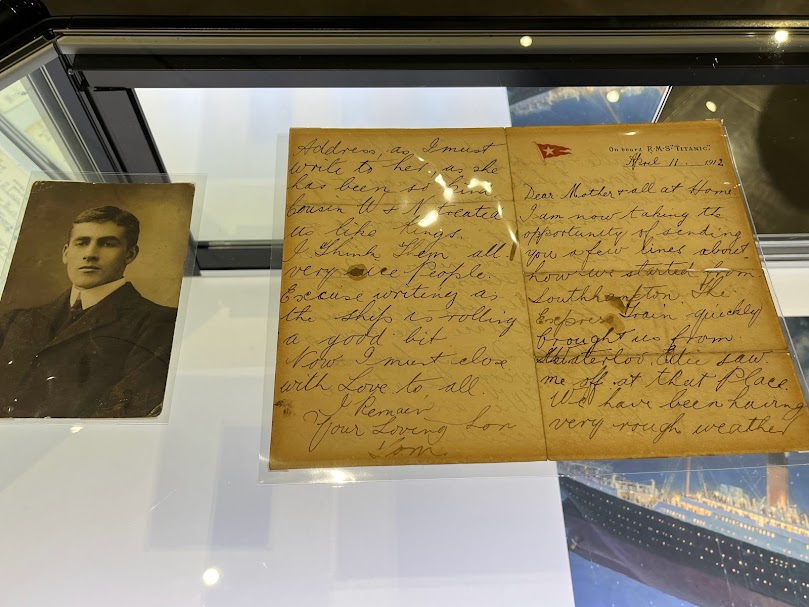 Address, as I must
write to her, as she
has been so kind
Cousin W & N treated
us like Kings.
I Think Them all
very nice People.
Excuse writing as
the ship is rolling
a good bit
Now I must close
with Love to all.
I Remain
Your Loving Son
Tom
On board R·M·S "TITANIC".
April 11. 1912
Dear Mother & all at Home
I am now taking the
opportunity of sending
you a few lines about
how we started from
Southhampton. The
Express Train quickly
brought us from
Waterloo. saw
me off at that Place.
We have been having
very rough weather